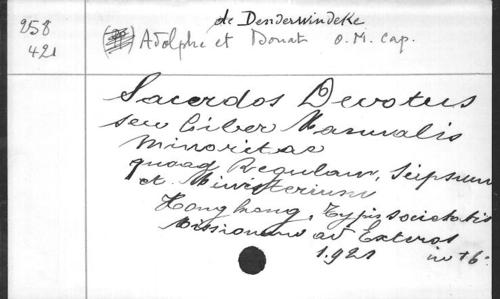 de Denderwindeke
258
421
Adolphe et Donat O. M. Cap.
Sacerdos Devotus
seu Liber Manualis
Minoritae
quoad Regulam, Seipsum
et Ministerium
Hong kong, Typis societatis
Missionum ad Exteros
1921 in 16°